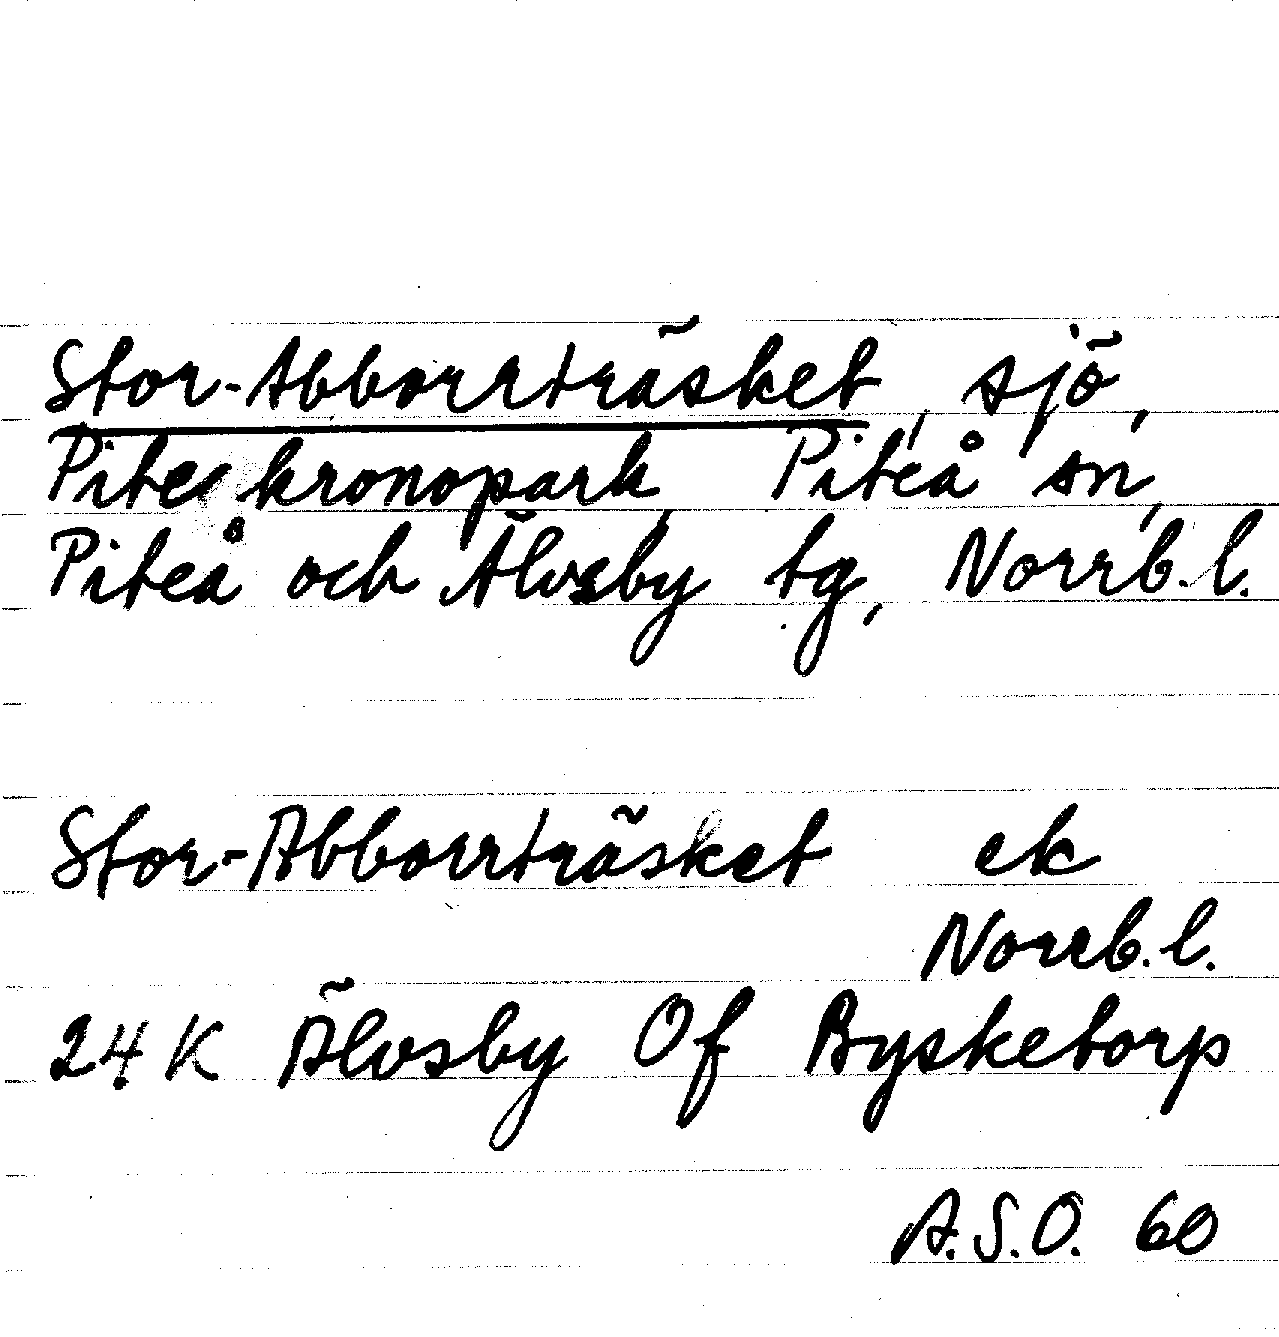 Stor-Abborrträsket, sjö,
Pite kronopark, Piteå sn,
Piteå och Älvsby tg, Norrb.l.
Stor-Abborrträsket ek
Norrb.l.
24K Älvsby Of Bysketorp
A.S.O. 60